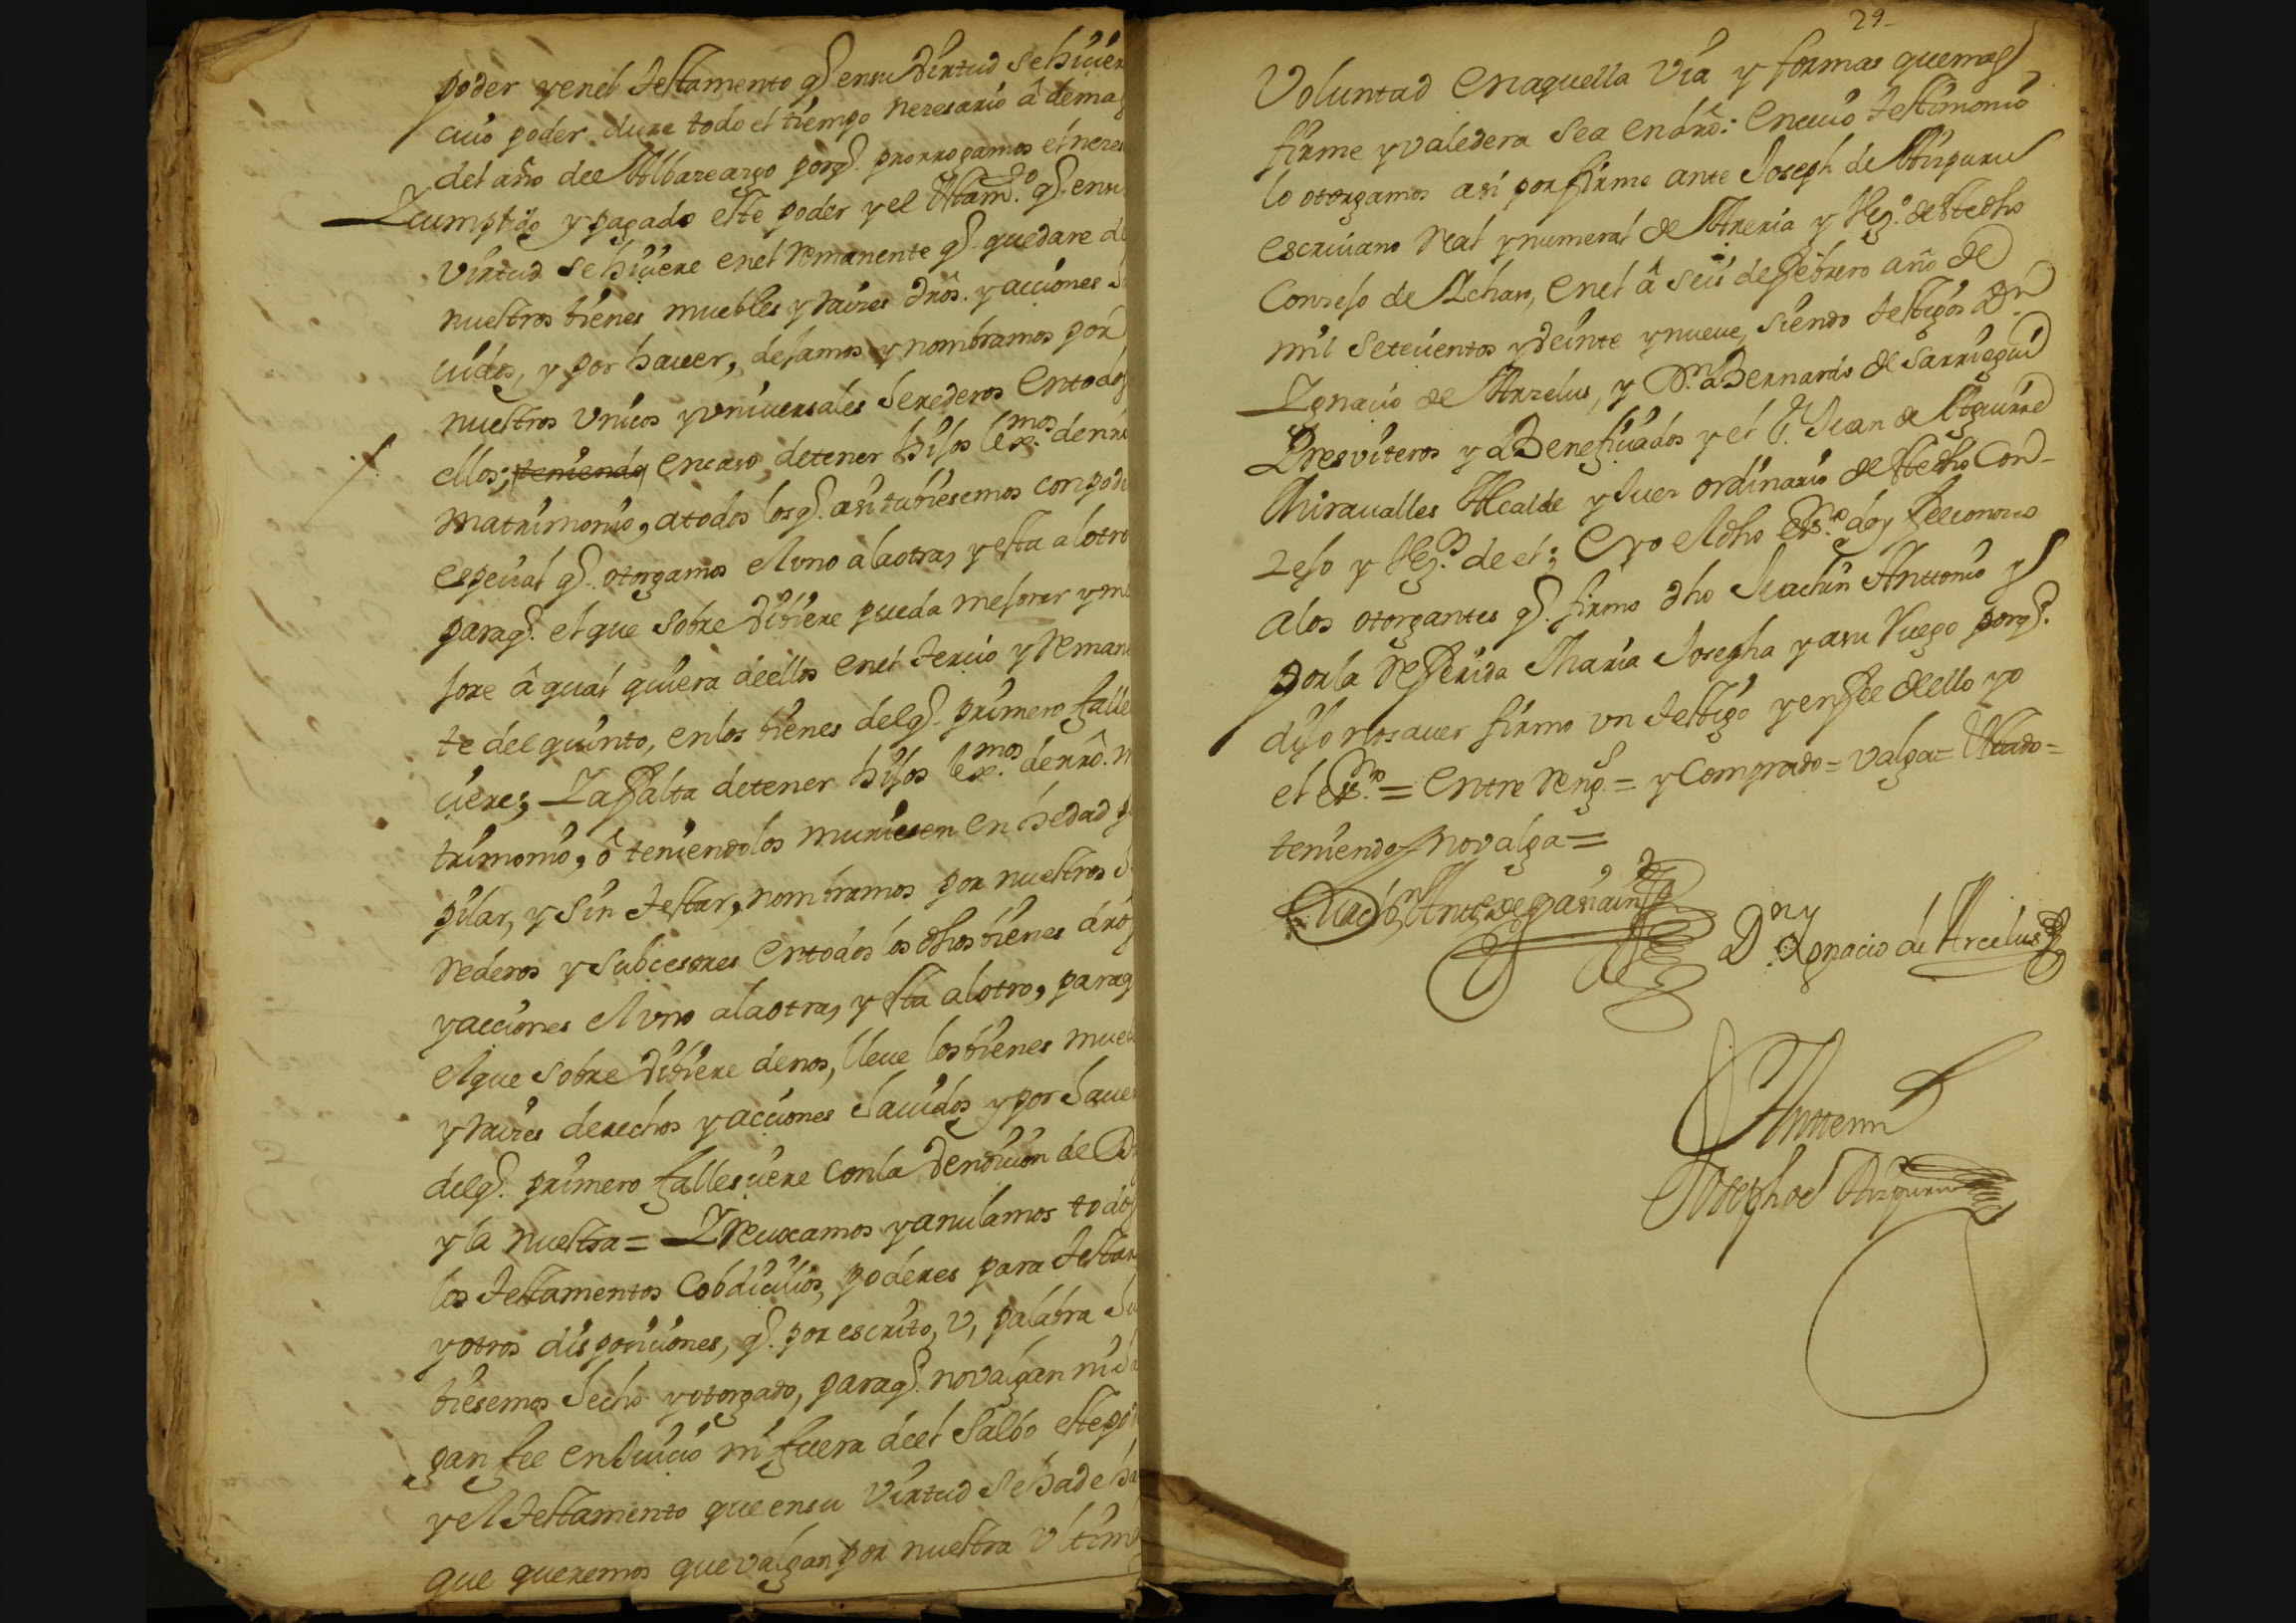 poder y enel Testamento q̃ ensu Virtud sehiuier
cuio poder dure todo el tiempo nezesario â demas
del año del Albazeazgo porq̃. prorrogamos el nezes
Y cumplido y pagado este poder y el Testam.to q̃. ensu
Virtud sehiuiere enel remanente q̃. quedare de
nuestros bienes muebles y raizes dr̃os. y acciones ha
uidos, y por hauer, dejamos y nombramos por
nuestros Vnicos y vniuersales herederos entodos
ellos; teniendo encaso detener hijos lex.mos denr̃o
matrimonio, atodos losq̃. asi tubiesemos con pode
espeçial q̃. otorgamos el vno ala otra, y esta al otro
paraq̃. el que sobre Vibiere pueda mejorar y me
jore â qual quiera deellos enel tercio y reman
te del quinto, enlos bienes delq̃. primero falle
ciere; Y afalta detener hijos lex.mos denr̃o. m
trimonio, ô teniendolos muriesen en hedad pu
pilar, y sin testar, nombramos por nuestros he
rederos y subcesores entodos los dhos bienes dr̃os
y acciones el vno ala otra, y esta al otro, paraq̃
el que sobre Vibiere denos, lleue los bienes mueb
y raizes derechos y acciones hauidos y por hauer
delq̃. primero fallesciere conla Vendicion de Di
y la nuestra = Y reuocamos y anulamos todos
los testamentos Cobdicilios, poderes para testar
y otros disposiciones, q̃. por escrito, v, palabra hu
biesemos hecho y otorgado, paraq̃. no valgan ni ha
gan fee en Juicio ni fuera deel Salbo este pod
y el testamento que ensu Virtud se hade ha
que queremos que valgan por nuestra Vltima
29-
Voluntad enaquella Via y formas quemas
firme y valedera sea endr̃o: encuio testimonio
lo otorgamos asi por firme ante Joseph de Aizpuru
escriuano real y numeral de Areria y Vez.o de este dho
Conzejo de Ichaso, enel â seis defebrero año de
mil setecientos y Veinte y nueve, siendo testigos D.n
Ygnacio de Arzelus, y D.n Bernardo de Sarriegui
Presviteros y Beneficiados y el S.r Juan de Aguirre
Miraualles Alcalde y Juez ordinario de este dho Con-
zejo y Vez.os de el; e yo el dho Ess.no doy fee conozco
alos otorgantes q̃. firmo dho Juachin Antonio y
por la referida Maria Josepha y asu ruego porq̃.
dijo nosauer firmo vn testigo y enfee dello yo
el ess.no = entre reng.s = y Comprado = valga = testado =
teniendo no valga =
D.n Ygnacio de Arcelus
Antemi
Joseph de Aizpuru